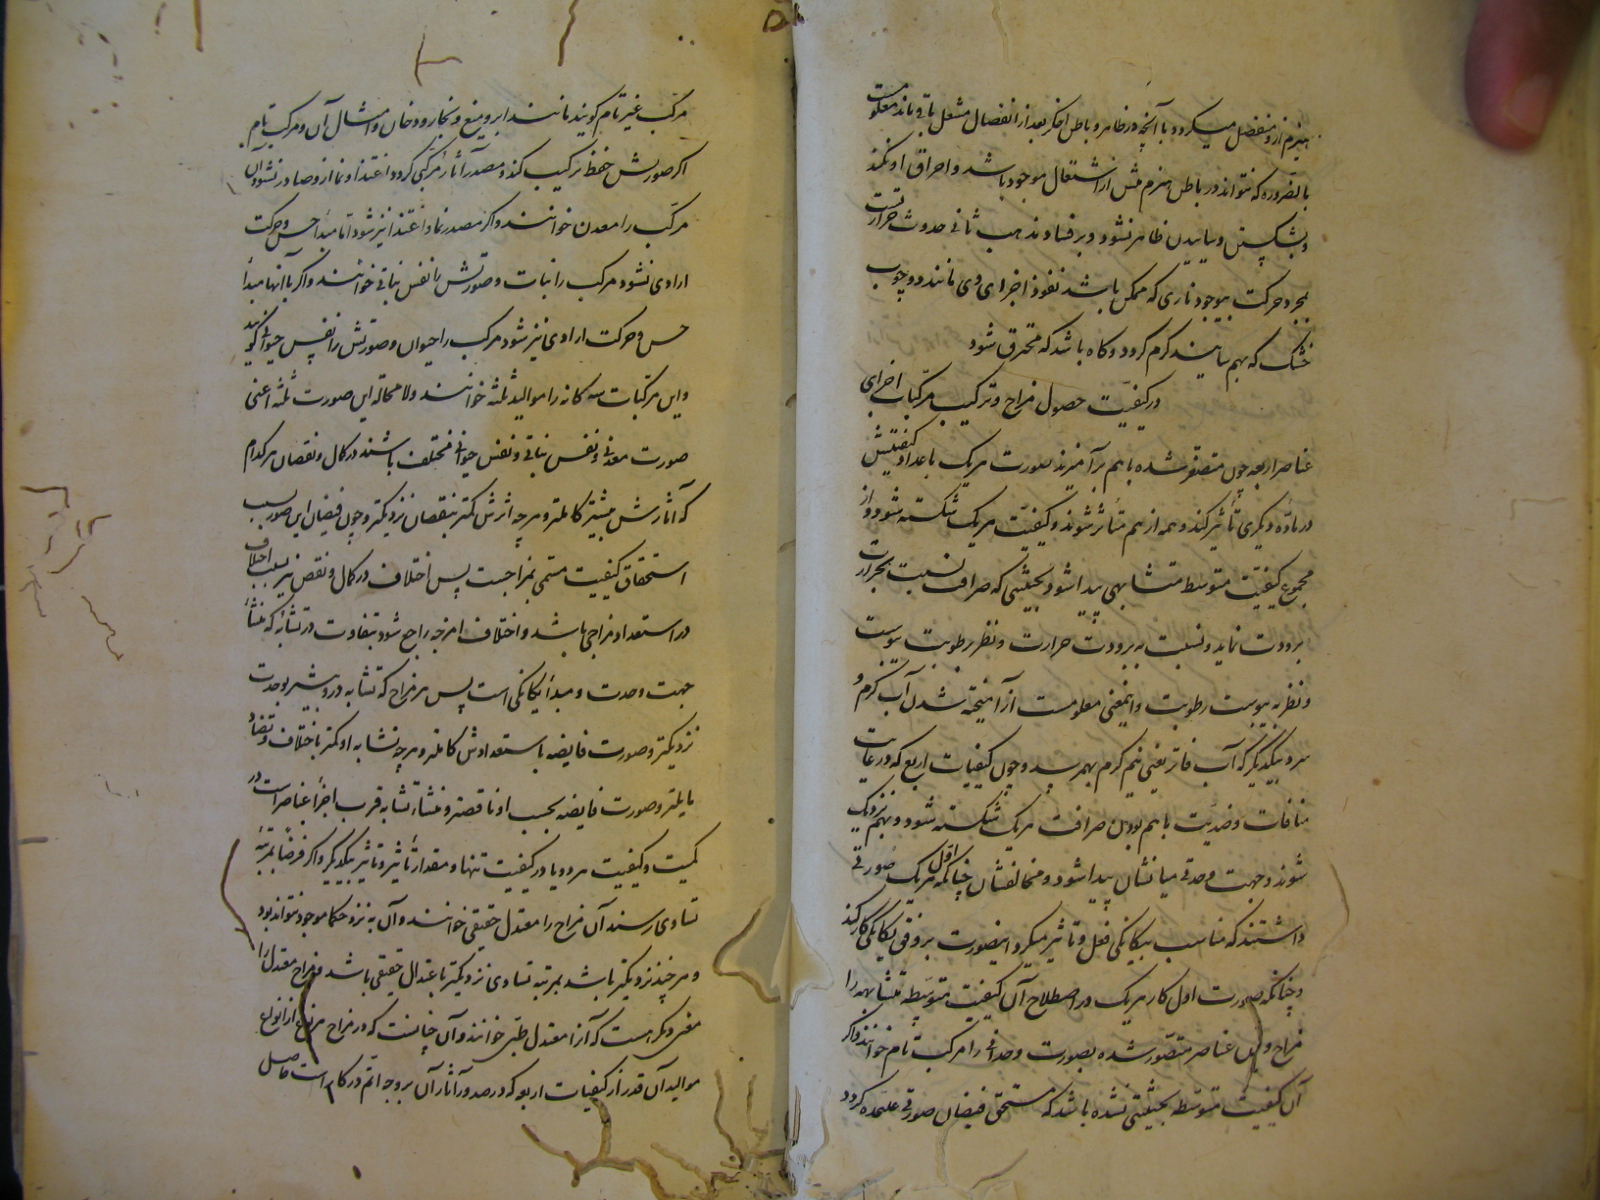 هیزم از و منفصل میکردد با آنچه در ظاهر و باطن اخکر بعد از انفصال مشعل باقی ماند معلومست
بالضروره که نتواند در باطن هیزم پیش از اشتعال موجود باشد و احراق او نکند
و بشکستن و ساییدن ظاهر نشود و بر فساد مذهب ثانی حدوث حرارت
بمجرد حرکت بیوجود ناری که ممکن باشد نفوذ اجزای وی مانند دو چوب
خشک که بهم سایند کرم کردد و کاه باشد که محترق شود
در کیفیّت حصول مزاج و ترکیب مرکّبات اجزای
عناصر اربعه چون متصغّر شده با هم برآمیزند صورت هریک باعداد کیفیتش
در مادّه دیکری تأثیر کند و همه از هم متأثر شوند و کیفیّت هریک شکسته شود و از
مجموع کیفیّت متوسّط متشابهی پیدا شود بحیثیتی که صرافت نسبت بحرارت
برودت نماید و نسبت به برودت حرارت و نظر برطوبت یبوست
و نظر به یبوست رطوبت و اینمعنی معلومست از آمیخته شدن آب کرم و
سرد بیکدیکر که آب فاتر یعنی نیم کرم بهمرسد و چون کیفیات اربع که در غایت
منافات و ضدیّت با هم بودن صرافت هریک شکسته شود و بهم نزدیک
شوند و جهت وحدتی میانشان پیدا شود و مخالفتشان چنانکه اوّل هریک صورتی
داشتند که مناسب بیکانکی فعل و تاثیر میکرد اینصورت بر وفق یکانکی کار کند
و چنانکه صورت اول کار هریک در اصطلاح آن کیفیت متوسّطه متشابهه را
مزاج و این عناصر متصوّر شده بصورت وحدانی را مرکب تام خوانند و اکر
آن کیفیت متوسّطه بحیثیتی نشده باشد که مستحق فیضان صورتی علیحده کردد
مرکّب غیر تام کویند مانند ابر و میغ و بخار و دخان و امثال آن و مرکب تام
اکر صورتش حفظ ترکیب کند و مصدر آثار مرکبی کردد و اغتذا و نما از و صادر نشود آن
مرکّب را معدن خوانند و اکر مصدر نما و اغتذا نیز شود امّا مبدأ حس و حرکت
ارادی نشود مرکب را نبات و صورتش را نفس نباتی خوانند و اکر با آنها مبدأ
حس و حرکت ارادی نیز شود مرکب را حیوان و صورتش را نفس حیوانی کویند
و این مرکّبات سه کانه را موالید ثلثه خوانند و لا محاله این صورت ثلثه اعنی
صورت معدنی و نفس نباتی و نفس حیوانی مختلف باشند در کمال و نقصان هرکدام
که آثارش بیشتر کاملتر و هرچه اثرش کمتر بنقصان نزدیکتر و چون فیضان این صور بسبب
استحقاق کیفیت مسمّی بمزاجست پس اختلاف در کمال و نقص نیز بسبب اختلاف
در استعداد مزاجی باشد و اختلاف امزجه راجع شود بتفاوت در تشابه که منشأ
جهت وحدت و مبدأ یکانکی است پس هر مزاج که تشابه درو بیشتر بوحدت
نزدیکتر و صورت فایضه باستعدادش کاملتر و هرچه تشابه او کمتر باختلاف و تضاد
مایلتر و صورت فایضه بحسب او ناقصتر و منشاء تشابه قرب اجزأ عناصر است در
کمیت و کیفیت هر دو یا در کیفیت تنها و مقدار تأثیر و تاثیر بیکدیکر و اکر فرضاً بمرتبه
تساوی رسند آن مزاج را معتدل حقیقی خوانند و آن به نزد حکما موجود نتواند بود
و هر چند نزدیکتر باشد بمرتبه تساوی نزدیکتر باعتدال حقیقی باشد و مزاج معتدل را
معنی دیکر هست که آنرا معتدل طبّی خوانند و آن چنانست که در مزاج هر نوع از انواع
موالید آن قدر از کیفیات اربع که در صدور آثار آن بر وجه اتم در کار است حاصل